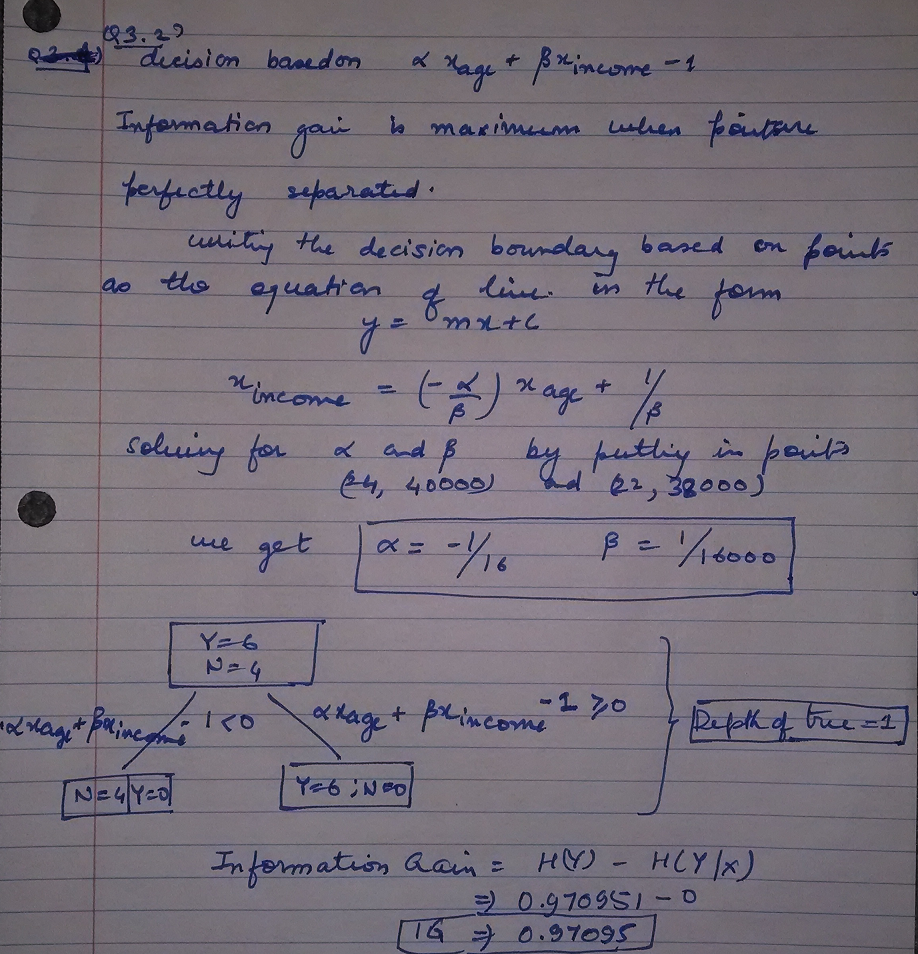 Q3.2)
decision based on α x_age + β x_income - 1
Information gain is maximum when points are
perfectly separated.
writing the decision boundary based on points
as the equation of line in the form
y = mx + c
x_income = (-α/β) x_age + 1/β
solving for α and β by putting in points
(24, 40000) and (22, 38000)
we get α = -1/16 β = 1/16000
Y=6
N=4
αx_age + βx_income - 1 < 0 αx_age + βx_income - 1 ≥ 0 Depth of tree = 1
N=4 Y=0 Y=6 ; N=0
Information Gain = H(Y) - H(Y/X)
⇒ 0.970951 - 0
IG ⇒ 0.97095